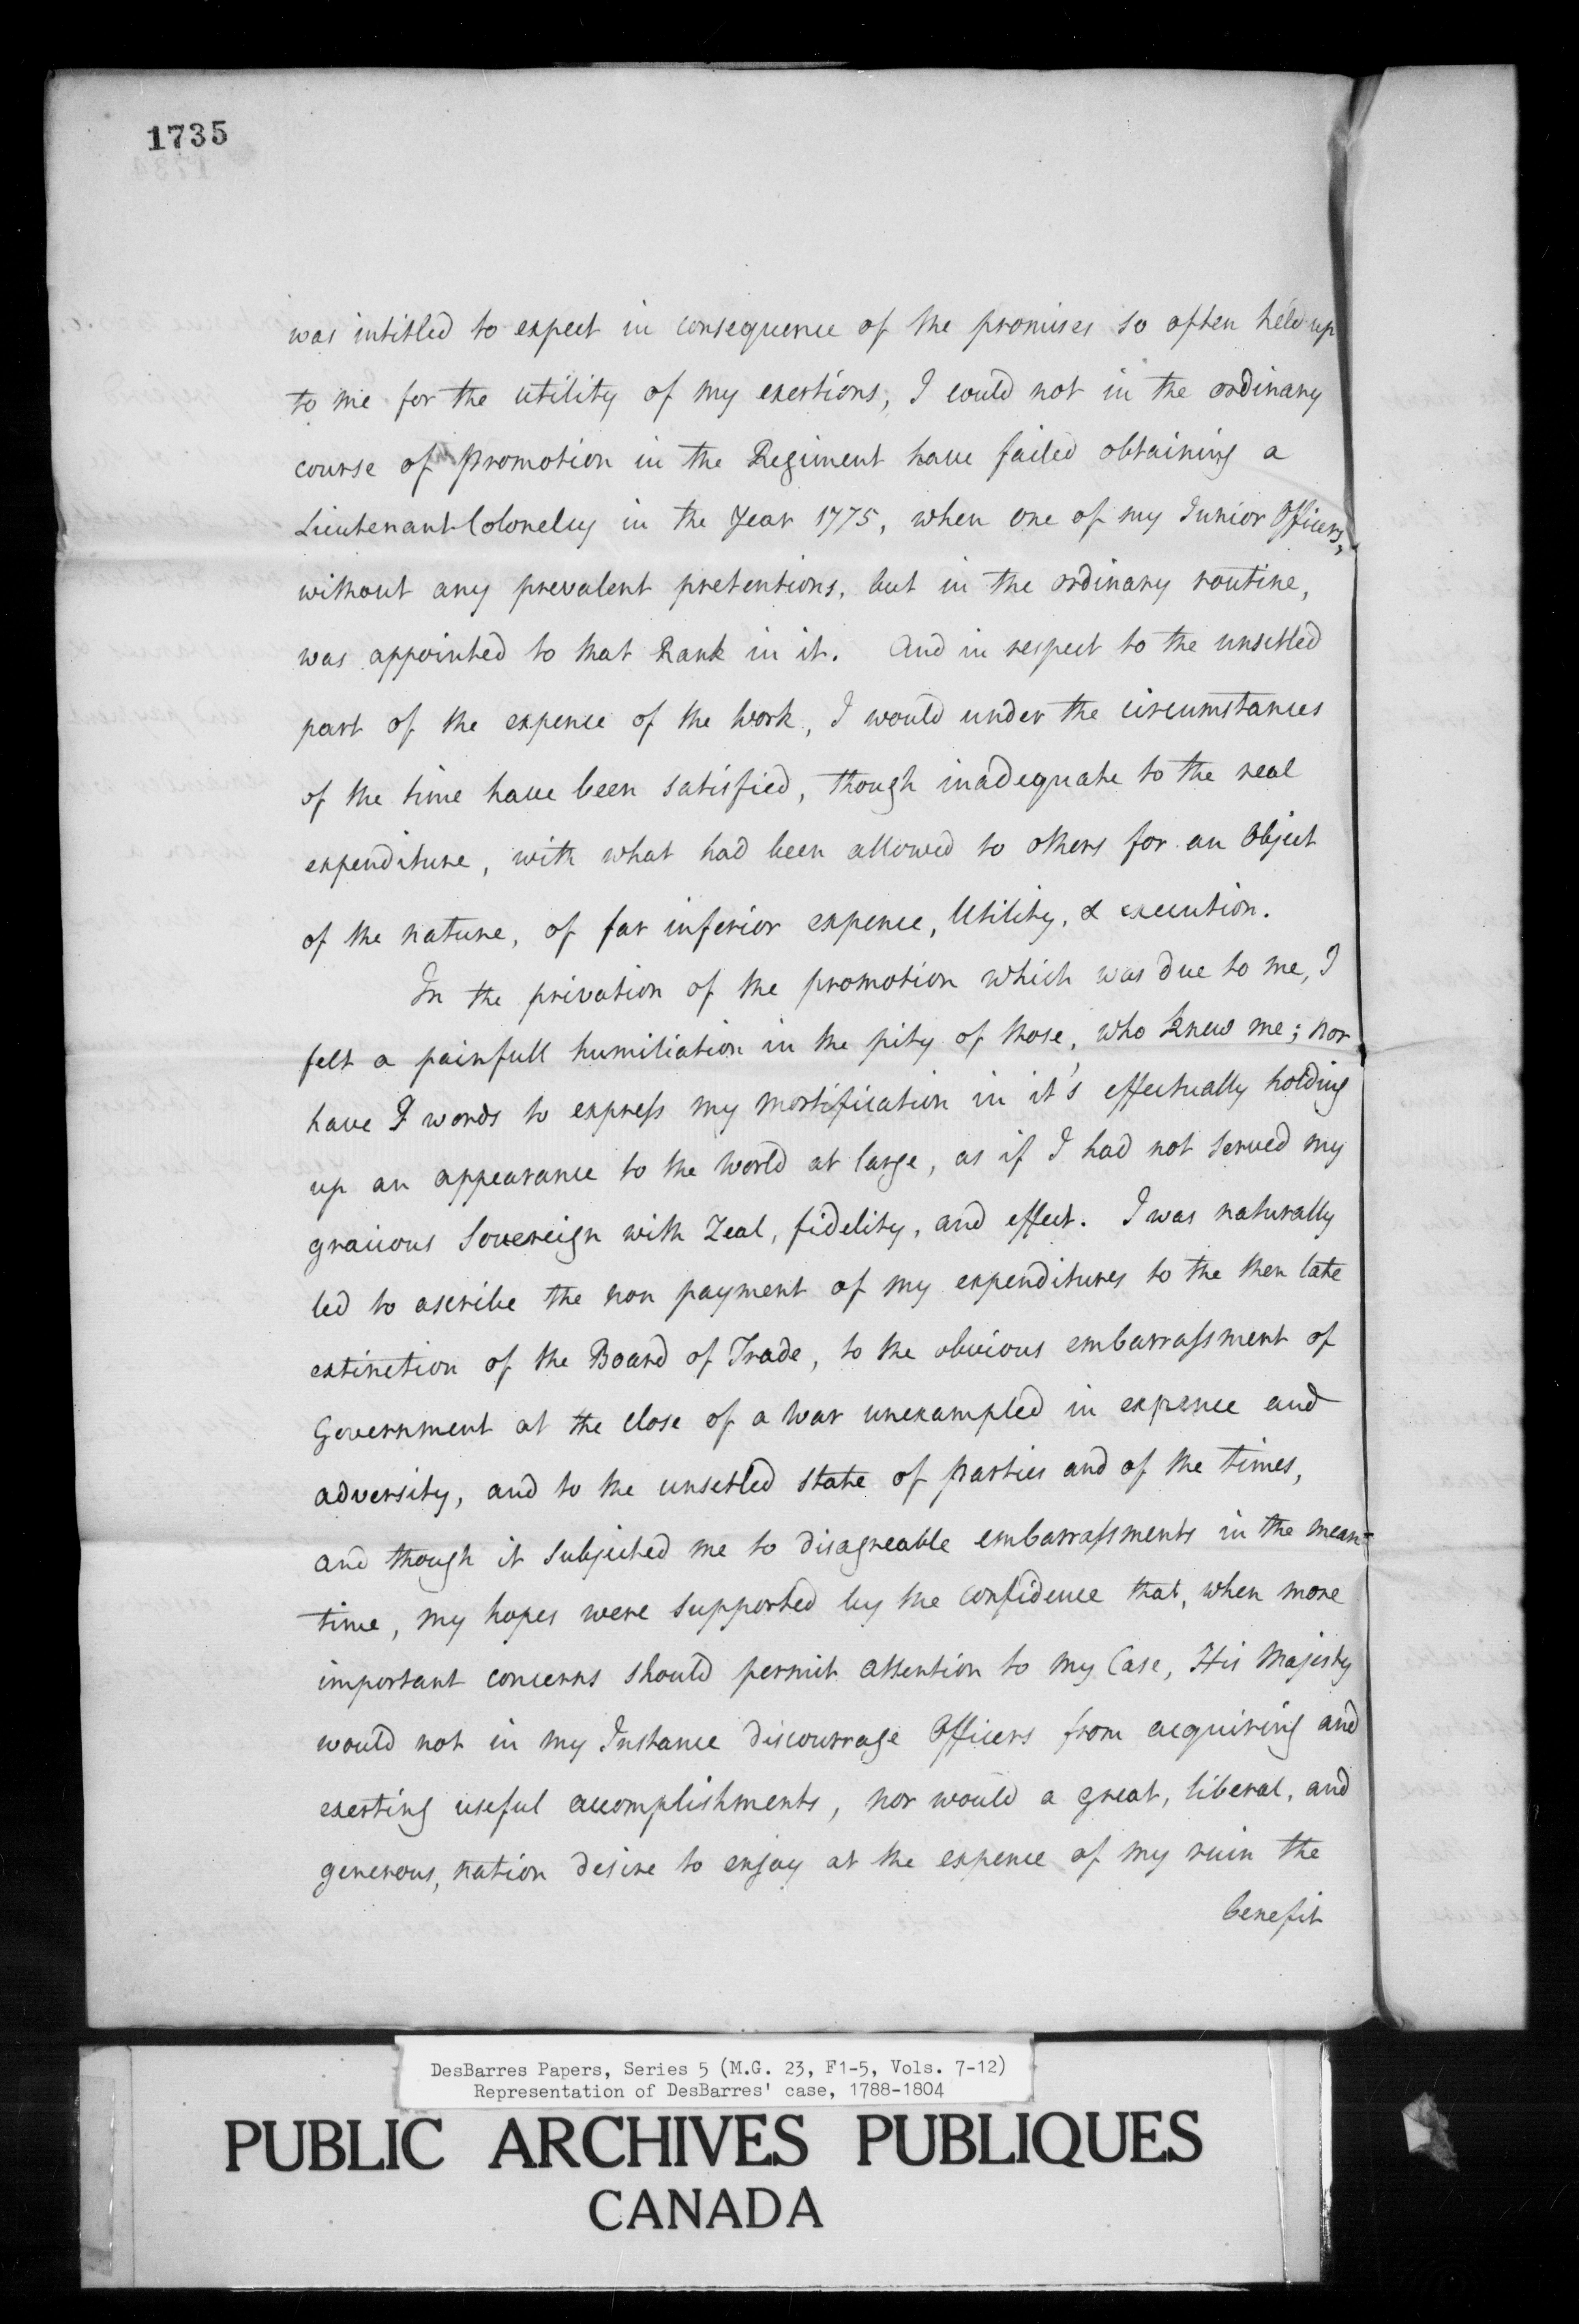 1735
was intitled to expect in consequence of the promises so often held up
to me for the utility of my exertions, I could not in the ordinary
course of promotion in the Regiment have failed obtaining a
Lieutenant Colonelcy in the Year 1775, when one of my Junior Officers,
without any prevalent pretentions, but in the ordinary routine,
was appointed to that Rank in it. And in respect to the unsetled
part of the expence of the work, I would under the circumstances
of the time have been satisfied, though inadequate to the real
expenditure, with what had been allowed to others for an Object
of the nature, of far inferior expence, Utility, & execution.
In the privation of the promotion which was due to me, I
felt a painfull humiliation in the pity of those, who knew me; nor
have I words to express my mortification in it's effectually holding
up an appearance to the World at large, as if I had not served my
gracious Sovereign with Zeal, fidelity, and effect. I was naturally
led to ascribe the non payment of my expenditures to the then late
extinction of the Board of Trade, to the obvious embarrassment of
Government at the close of a War unexampled in expence and
adversity, and to the unsetled state of parties and of the times,
and though it subjected me to disagreable embarrassments in the mean=
time, my hopes were supported by the confidence that, when more
important concerns should permit attention to my Case, His Majesty
would not in my Instance discourrage Officers from acquiring and
exerting useful accomplishments, nor would a great, liberal, and
generous, nation desire to enjoy at the expence of my ruin the
benefit
DesBarres Papers, Series 5 (M.G. 23, F1-5, Vols. 7-12)
Representation of DesBarres' case, 1788-1804
PUBLIC ARCHIVES PUBLIQUES
CANADA